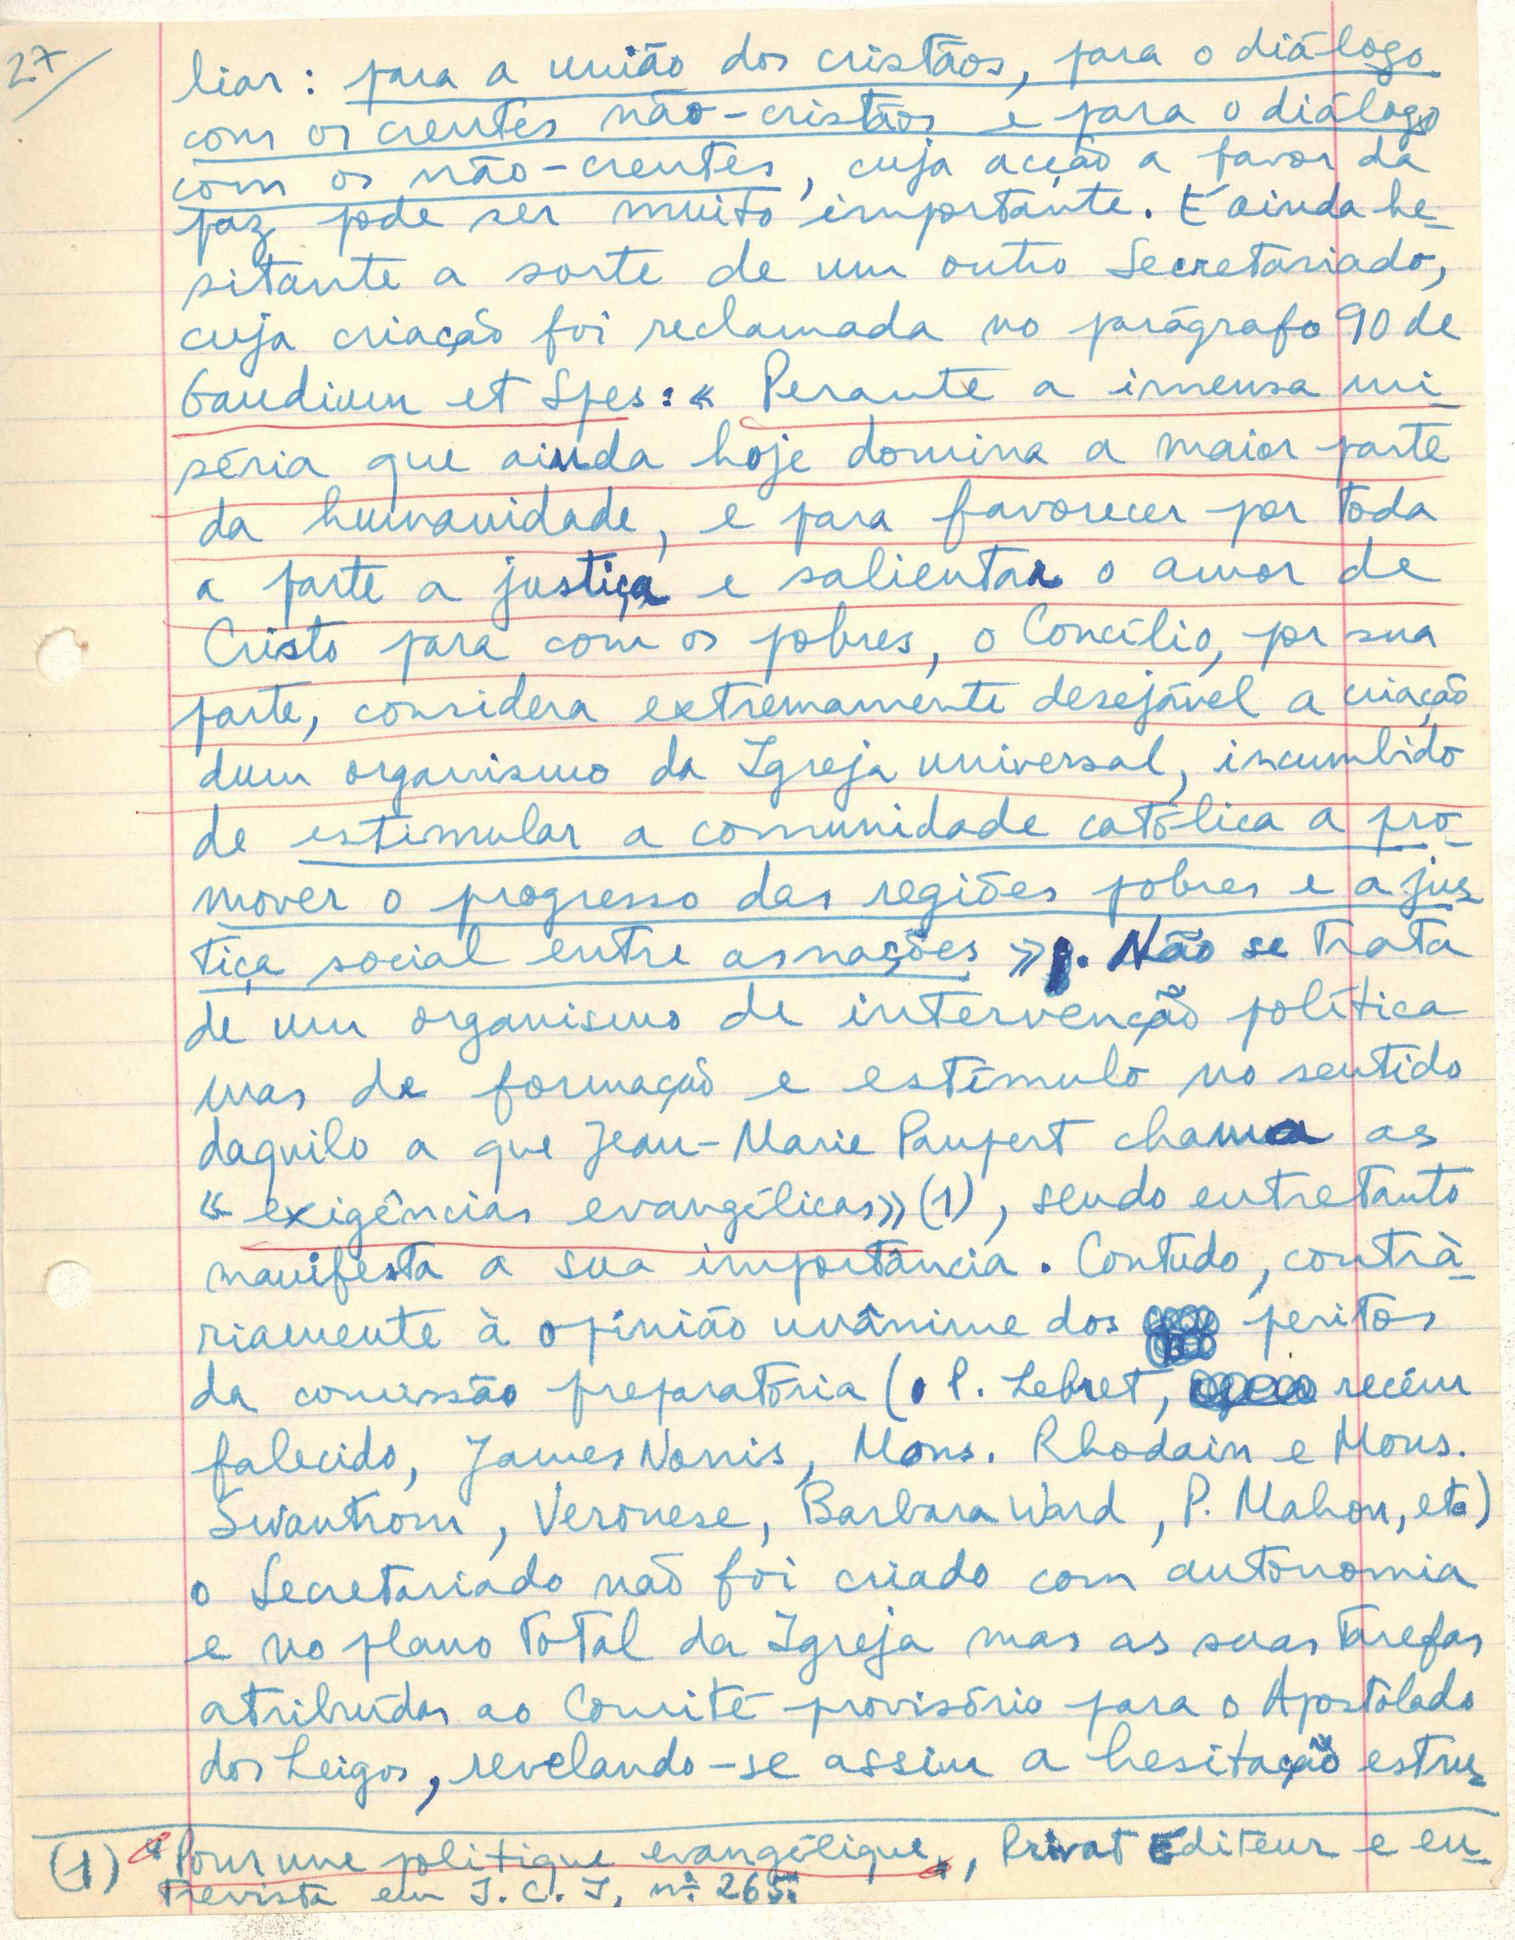 27
liar: para a união dos cristãos, para o diálogo
com os crentes não-cristãos e para o diálogo
com os não-crentes, cuja acção a favor da
paz pode ser muito importante. É ainda he-
sitante a sorte de um outro Secretariado,
cuja criação foi reclamada no parágrafo 90 de
Gaudium et Spes: « Perante a imensa mi-
séria que ainda hoje domina a maior parte
da humanidade, e para favorecer por toda
a parte a justiça e salientar o amor de
Cristo para com os pobres, o Concílio, por sua
parte, considera extremamente desejável a criação
dum organismo da Igreja universal, incumbido
de estimular a comunidade católica a pro-
mover o progresso das regiões pobres e a jus-
tiça social entre as nações ». Não se trata
de um organismo de intervenção política
mas de formação e estímulo no sentido
daquilo a que Jean-Marie Paupert chama as
« exigências evangélicas» (1), sendo entretanto
manifesta a sua importância. Contudo, contrà-
riamente à opinião unânime dos peritos
da comissão preparatória (o P. Lebret, recém
falecido, James Norris, Mons. Rhodain e Mons.
Swantrom, Veronese, Barbara Ward, P. Mahon, etc)
o Secretariado não foi criado com autonomia
e no plano total da Igreja mas as suas tarefas
atribuídas ao Comité provisório para o Apostolado
dos Leigos, revelando-se assim a hesitação estru-
(1) "Pour une politique evangélique", Privat Editeur e en-
trevista em I. C. I, nº 265.